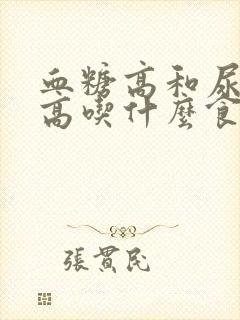 血糖高和尿
高喫什麼食
張貫民